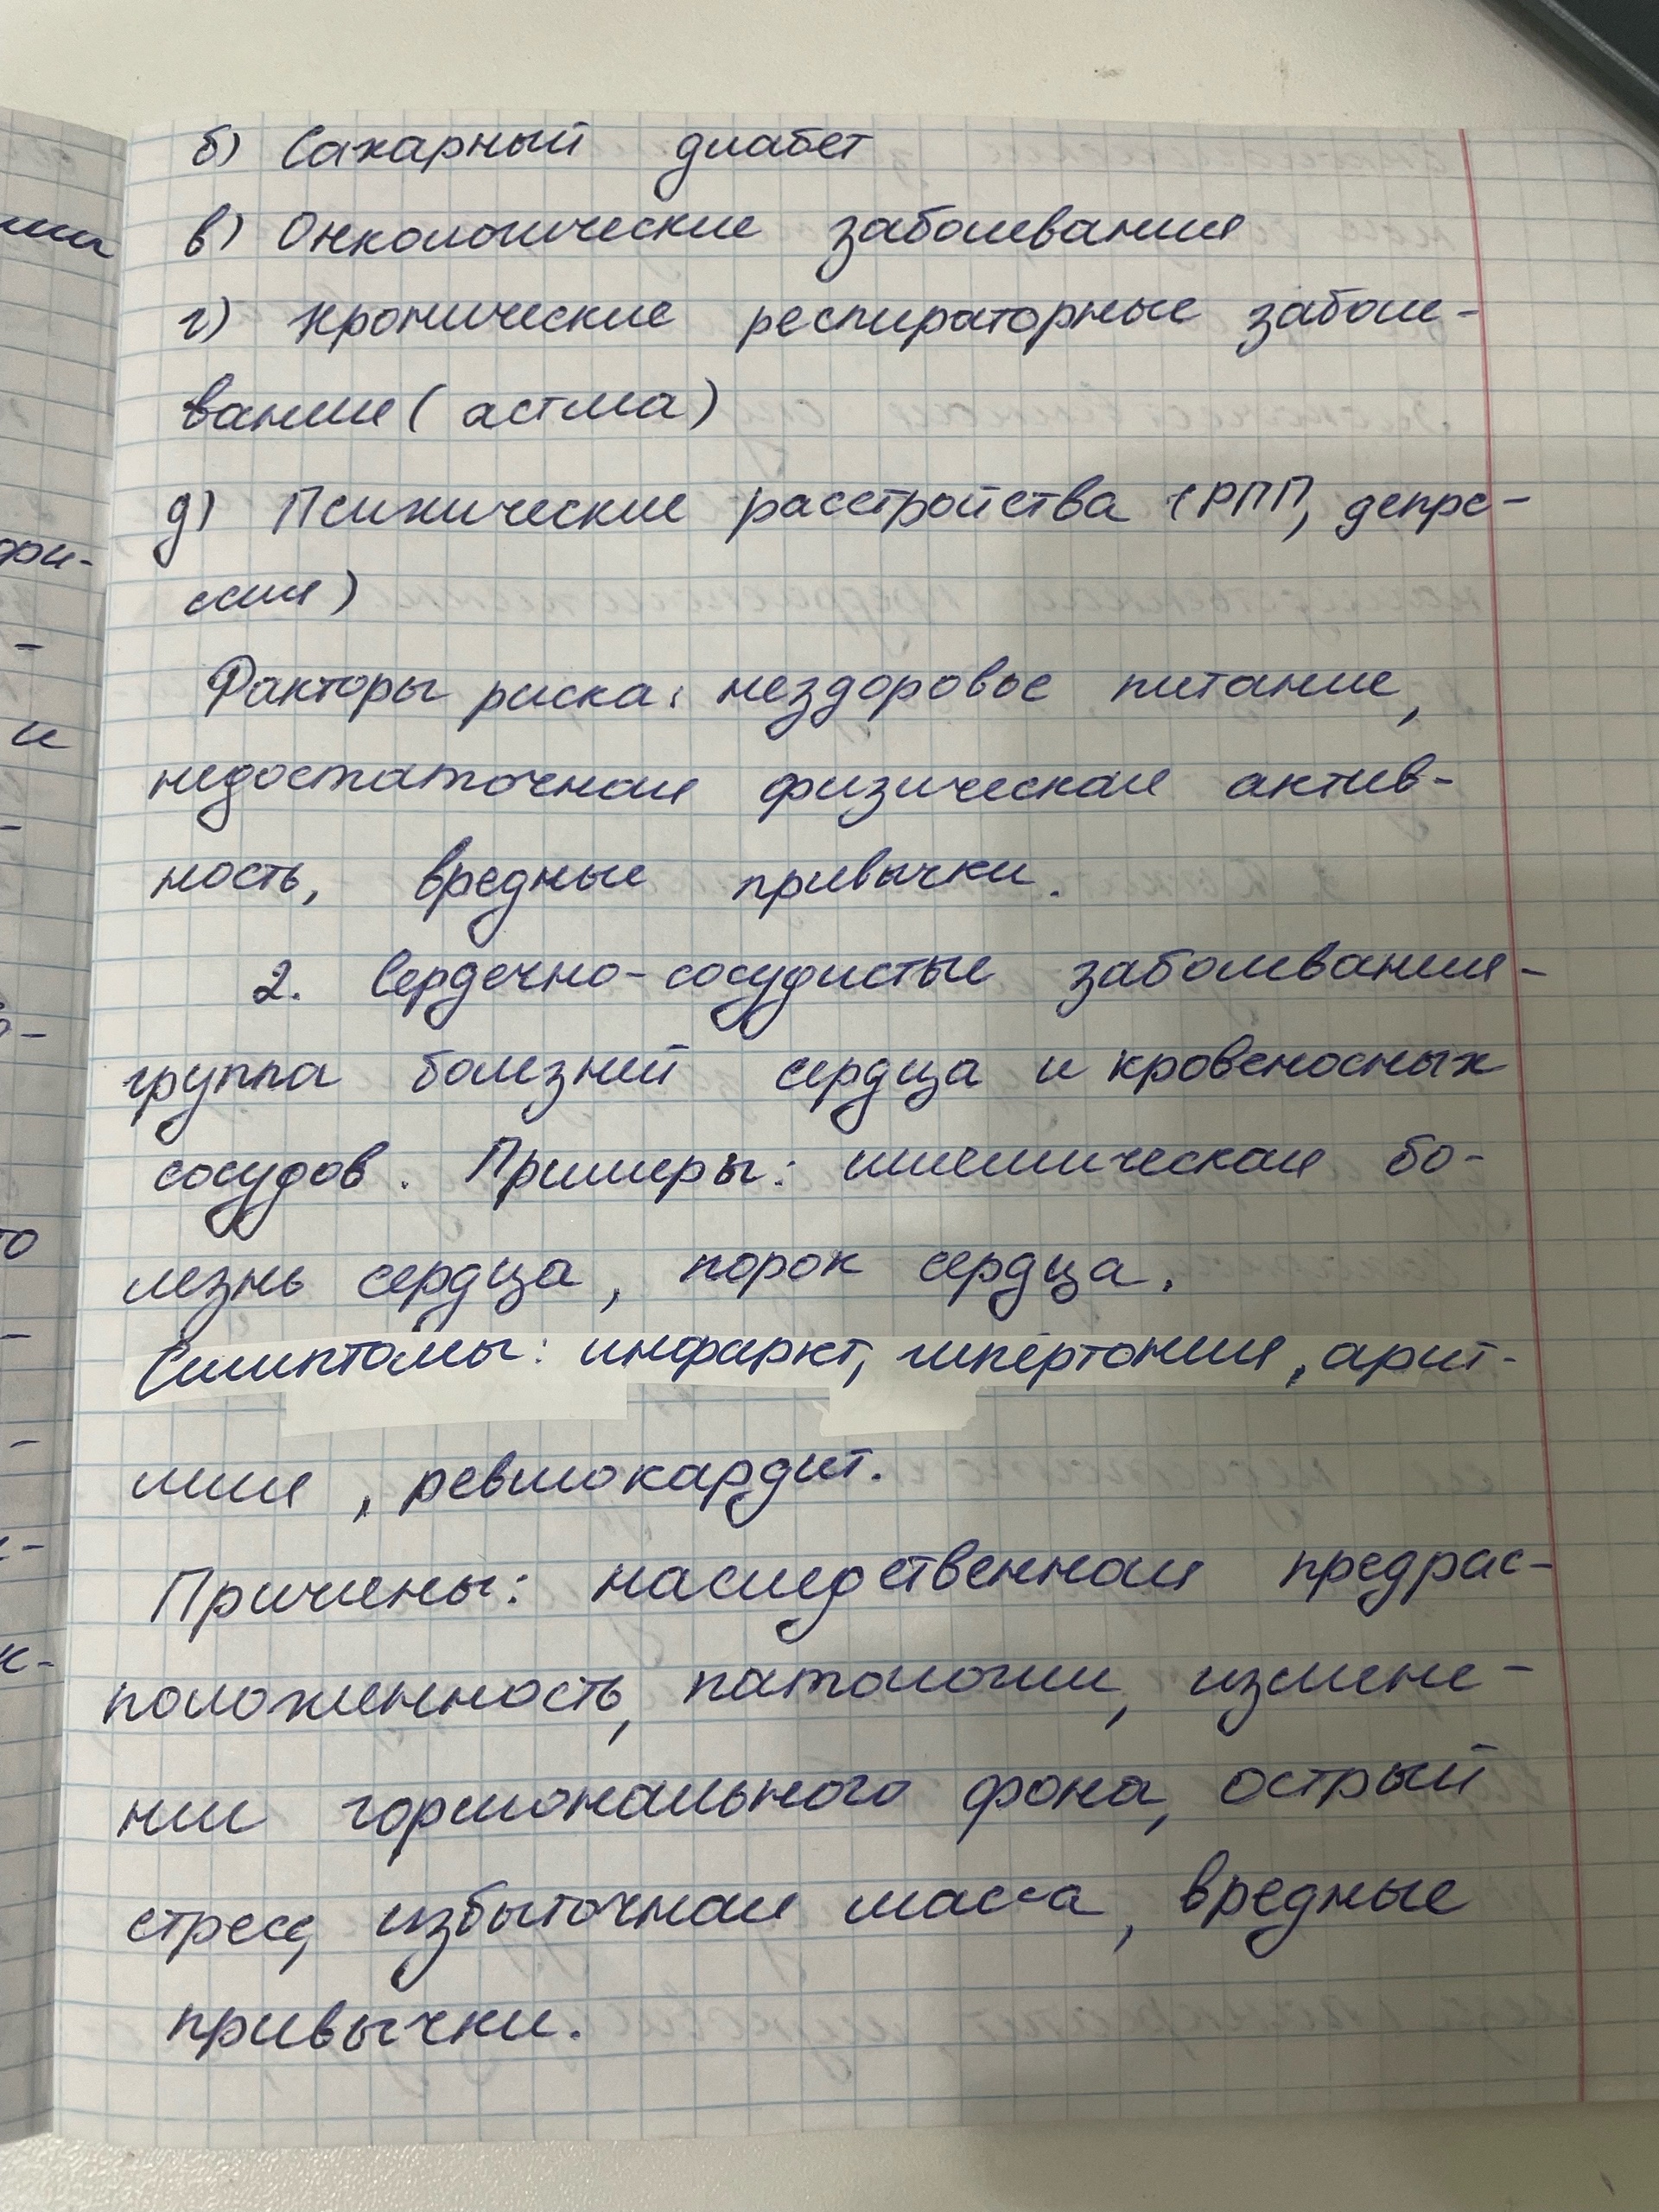 б) Сахарный диабет
в) Онкологические заболевания
г) Хронические респираторные заболе-
вание (астма)
д) Психические расстройства (РПП, депре-
ссия)
Факторы риска: нездоровое питание,
недостаточная физическая актив-
ность, вредные привычки.
2. Сердечно-сосудистые заболевания-
группа болезней сердца и кровеносных
сосудов. Примеры: ишемическая бо-
лезнь сердца, порок сердца.
Симптомы: инфаркт, гипертония, арит-
мия, ревмокардит.
Причины: наследственная предрас-
положенность, патологии, измене-
нии гормонального фона, острый
стресс, избыточная масса, вредные
привычки.